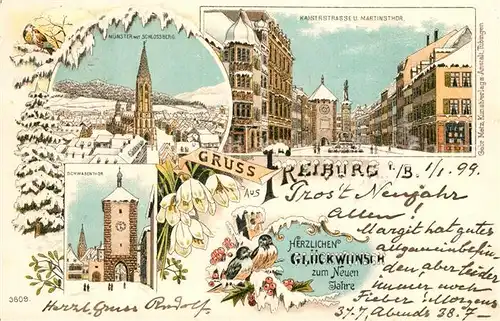 MÜNSTER MIT SCHLOSSBERG.
KAISERSTRASSE U. MARTINSTHOR.
Gebr. Metz, Kunstverlags-Anstalt, Tübingen
SCHWABENTHOR
GRUSS
AUS
FREIBURG i/B. 1/1. 99.
Pros't Neujahr
Allen!
Margit hat gutes
allgemeinbefin
den aber leider
immer noch
Fieber Morgens
37.7, Abends 38.7-
HERZLICHEN
GLÜCKWUNSCH
zum Neuen
Jahre
3609.
Herzl. Gruss Rudolf